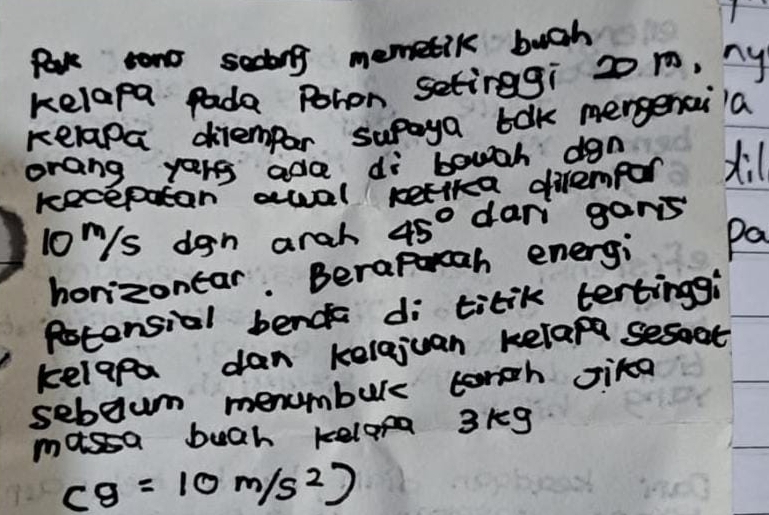 Pak tono sedang memetik buah
kelapa pada Pohon setinggi 20 m.
kelapa dilempar supaya tdk mengenai
orang yang ada di bawah dgn
kecepatan awal ketika dilempar
10 m/s dgn arah 45° dari garis
horizontar. Berapakah energi
Potensial benda di titik tertinggi
kelapa dan kelajuan kelapa sesaat
sebelum menumbuk tanah Jika
massa buah kelapa 3 kg
(g = 10 m/s²)
ny
la
pa